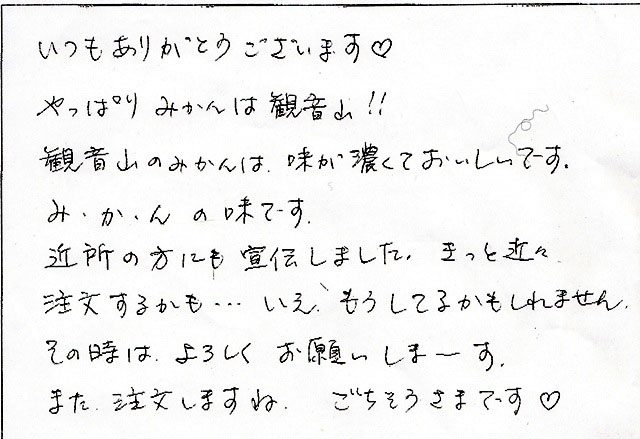 いつもありがとうございます♡
やっぱり みかんは観音山!!
観音山のみかんは、味が濃くておいしいです。
み・か・ん の味です。
近所の方にも宣伝しました。きっと近々
注文するかも… いえ、もうしてるかもしれません。
その時は、よろしく お願いしま〜す。
また、注文しますね。 ごちそうさまです♡